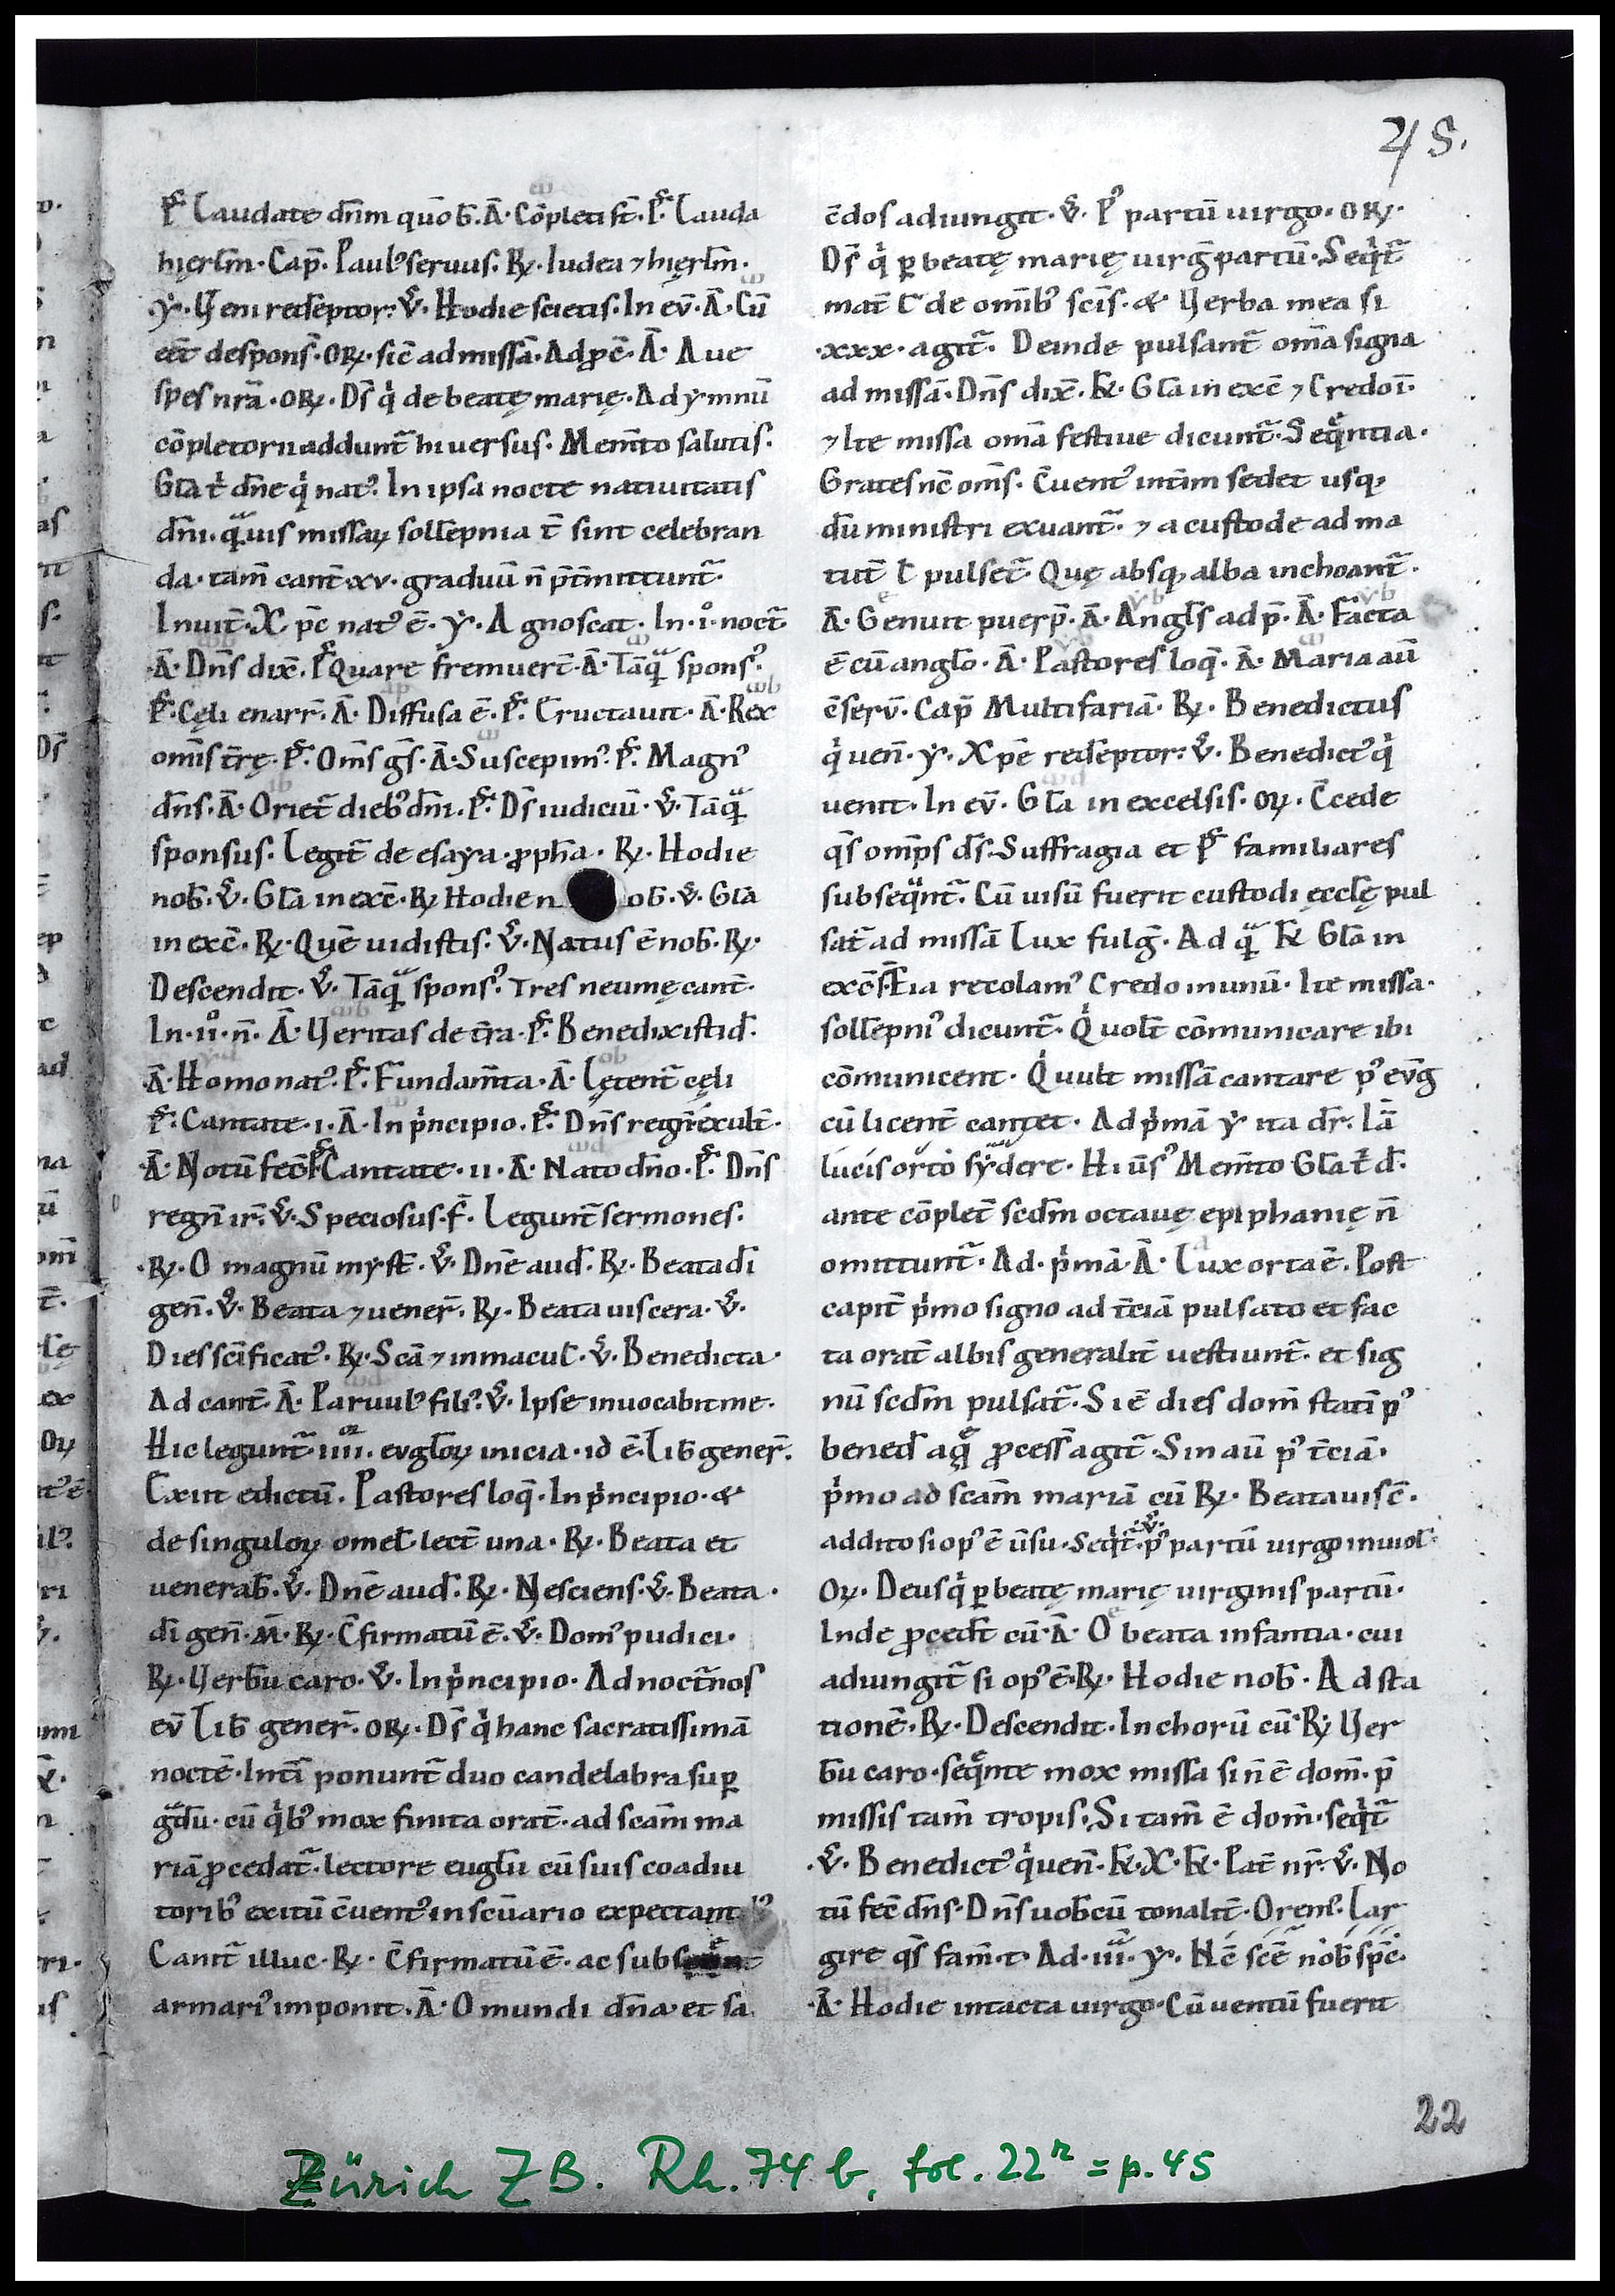 45.
Ps̄ Laudate dn̄m qm̄ob. Ā. Cōpleti st̄. Ps̄. Lauda
hięrl̄m. Cap̄. Paul᾽ seruus. R̸. Iudea ⁊ hięrl̄m.
ẏ. Veni redēptor. v̄. Hodie scietis. In ev̄. Ā. Cū
eēt despons̄. OR̸. sic̄ ad missā. Ad p̄c̄. Ā. Aue
spes nr̄a. OR̸. Ds̄ q̇ de beatę marię. Ad ẏmnū
cōpletorii addunt̄ hi uersus. Mem̄to salutis.
Gl̄a t̄ dn̄e q̇ nat᾽. In ipsa nocte natiuitatis
dn̄i. q̄uis missaꝝ soll̄epnia t̄ sint celebran
da. tam̄ cant̄ xv. graduū n̄ p̄t̄mittunt̄.
Inuit̄. X pc̄ nat᾽ ē. ẏ. Agnoscat. In. i᾽. noct̄.
Ā. Dn̄s dix̄. Ps̄ Quare fremuer̄t. Ā. Tāq̄ spons᾽.
Ps̄. Cęli enarr̄. Ā. Diffusa ē. Ps̄. Eructauit. Ā. Rex
om̄is t̄rę. Ps̄. Om̄s gs̄. Ā. Suscepim᾽. Ps̄. Magn᾽
dn̄s. Ā. Oriet̄ dieb᾽ dn̄i. Ps̄. Ds̄ iudiciū. v̄. Tāq̄
sponsus. Legit̄ de esaẏa ꝓph̄a. R̸. Hodie
nob̄. v̄. Gl̄a in exc̄. R̸ Hodie n ob̄. v̄. Gl̄a
in exc̄. R̸. Quē uidistis. v̄. Natus ē nob̄. R̸.
Descendit. v̄. Tāq̄ spons᾽. Tres neumę cant̄.
In. ii᾽. n̄. Ā. Veritas de t̄ra. Ps̄. Benedixisti d̄.
Ā. Homo nat᾽. Ps̄. Fundam̄ta. Ā. Lętent̄ cęli
Ps̄. Cantate. i. Ā. In p̍ncipio. Ps̄. Dn̄s regn̄ exult̄.
Ā. Notū fec̄ Ps̄ Cantate. ii. Ā. Nato dn̄o. Ps̄. Dn̄s
regn̄ ir̄. v̄. Speciosus. f̄. Legunt̄ sermones.
R̸. O magnū mẏst̄. v̄. Dn̄e aud̄. R̸. Beata di
gen̄. v̄. Beata ⁊ uener̄. R̸. Beata uiscera. v̄.
Dies sc̄ificat᾽. R̸. Scā ⁊ inmacul̄. v̄. Benedicta.
Ad cant̄. Ā. Paruul᾽ fili᾽. v̄. Ipse inuocabit me.
Hic legunt̄ iiii. evgl̄oꝝ inicia. id ē. Lib̄ gener̄.
Exiit edictū. Pastores loq̄. In p̍ncipio. &
de singuloꝝ omel̄. lect̄ una. R̸. Beata et
uenerab̄. v̄. Dn̄e aud̄. R̸. Nesciens. v̄. Beata.
di gen̄. M̄. R̸. C̄firmatū ē. v̄. Dom᾽ pudici.
R̸. Verbū caro. v̄. In p̍ncipio. Ad noct̄nos
ev̄ Lib̄ gener̄. OR̸. Ds̄ q̇ hanc sacratissimā
noctē. Int̄i ponunt̄ duo candelabra suꝑ
gͣdū. cū q̇b᾽ mox finita orat̄. ad scām̄ ma
riā ꝓcedat̄. lectore eugl̄ii cū suis coadiu
torib᾽ exitū c̄uent᾽ in sc̄uario expectant
Cantt̄ illuc. R̸. C̄firmatū ē. ac
armari᾽ imponit. Ā. O mundi dn̄a. et sa
c̄dos adiungit. v̄. P᾽ partū uirgo. OR̸.
Ds̄ q̇ ꝑ beatę marię uirḡ partū. Seq̇t̄
mat̄ L̄ de om̄ib᾽ sc̄is. & Verba mea si
.xxx. agit̄. Deinde pulsant̄ om̄a signa
ad missā. Dn̄s dix̄. K̄. Gl̄a in exc̄ ⁊ Credo ī.
⁊ Ite missa om̄a festiue dicunt̄. Seq̄ntia.
Grates nc̄ om̄s. C̄uent᾽ int̄im sedet usq;
dū ministri exuant̄. ⁊ a custode ad ma
tut̄ L̄ pulset̄. Quę absq; alba inchoant̄.
Ā. Genuit puerp̄. Ā. Angl̄s ad p̄. Ā. Facta
ē cū anglo. Ā. Pastores loq̄. Ā. Maria aū
c̄serv̄. Cap̄ Multifariā. R̸. Benedictus
q̇ uen̄. ẏ. Xpē redēptor. v̄. Benedict᾽ q̇
uenit. In ev̄. Gl̄a in excelsis. Oꝝ. C̄cede
qs̄ om̄ps ds̄. Suffragia et Ps̄ familiares
subseq̄nt̄. Cū uisū fuerit custodi ęccl̄ę pul
sat̄ ad missā Lux fulḡ. Ad q̄ K̄ Gl̄a in
exc̄. S̄. Eia recolam᾽ Credo in unū. Ite missa.
soll̄epni᾽ dicunt̄. Q̇ uol̄t cōmunicare ibi
cōmunicent. Q̇ uult missā cantare p᾽ ev̄g
cū licent̄ cantet. Ad p̍mā ẏ ita dr̄. Iā
lucis orto sẏdere. Hi ūs᾽ Mem̄to Gl̄a t̄ d̄.
ante cōplet̄ scdm̄ octauę epiphanię n̄
omittunt̄. Ad. p̍mā. Ā. Lux orta ē. Post
capit̄ p̍mo signo ad t̄ciā pulsato et fac
ta orat̄ albis generalit̄ uestiunt̄. et sig
nū scdm̄ pulsat̄. Si ē dies dom̄ statī p᾽
bened̄ aq̄ ꝓcess̄ agit̄. Sin aū p᾽ t̄ciā.
p̍mo ad scam̄ mariā cū R̸. Beata uisc̄.
addito si op᾽ ē ūsu. Seq̇t̄. v̄. p᾽ partū uirgo inuiol̄.
Oꝝ. Deus q̇ ꝑ beatę marię uirginis partū.
Inde ꝓcedt̄ cū. Ā. O beata infantia. cui
adiungit̄ si op᾽ ē. R̸. Hodie nob̄. Ad sta
tionē. R̸. Descendit. In chorū cū R̸ Ver
bū caro. seq̄nte mox missa si n̄ ē dom̄. p̄
missis tam̄ tropis. Si tam̄ ē dom̄. seq̇t̄
v̄. Benedict᾽ q̇ uen̄. K̄. X̄. K̄. Pat̄ nr̄. v̄. No
tū fec̄ dn̄s. Dn̄s uob̄cū tonalit̄. Orem᾽. Lar
gire qs̄ fam̄. t. Ad. iii. ẏ. Nc̄ scē nob̄ spc̄.
Ā. Hodie intacta uirgo. Cū uentū fuerit
22
Zürich ZB. Rh. 74 b, fol. 22ʳ = p. 45